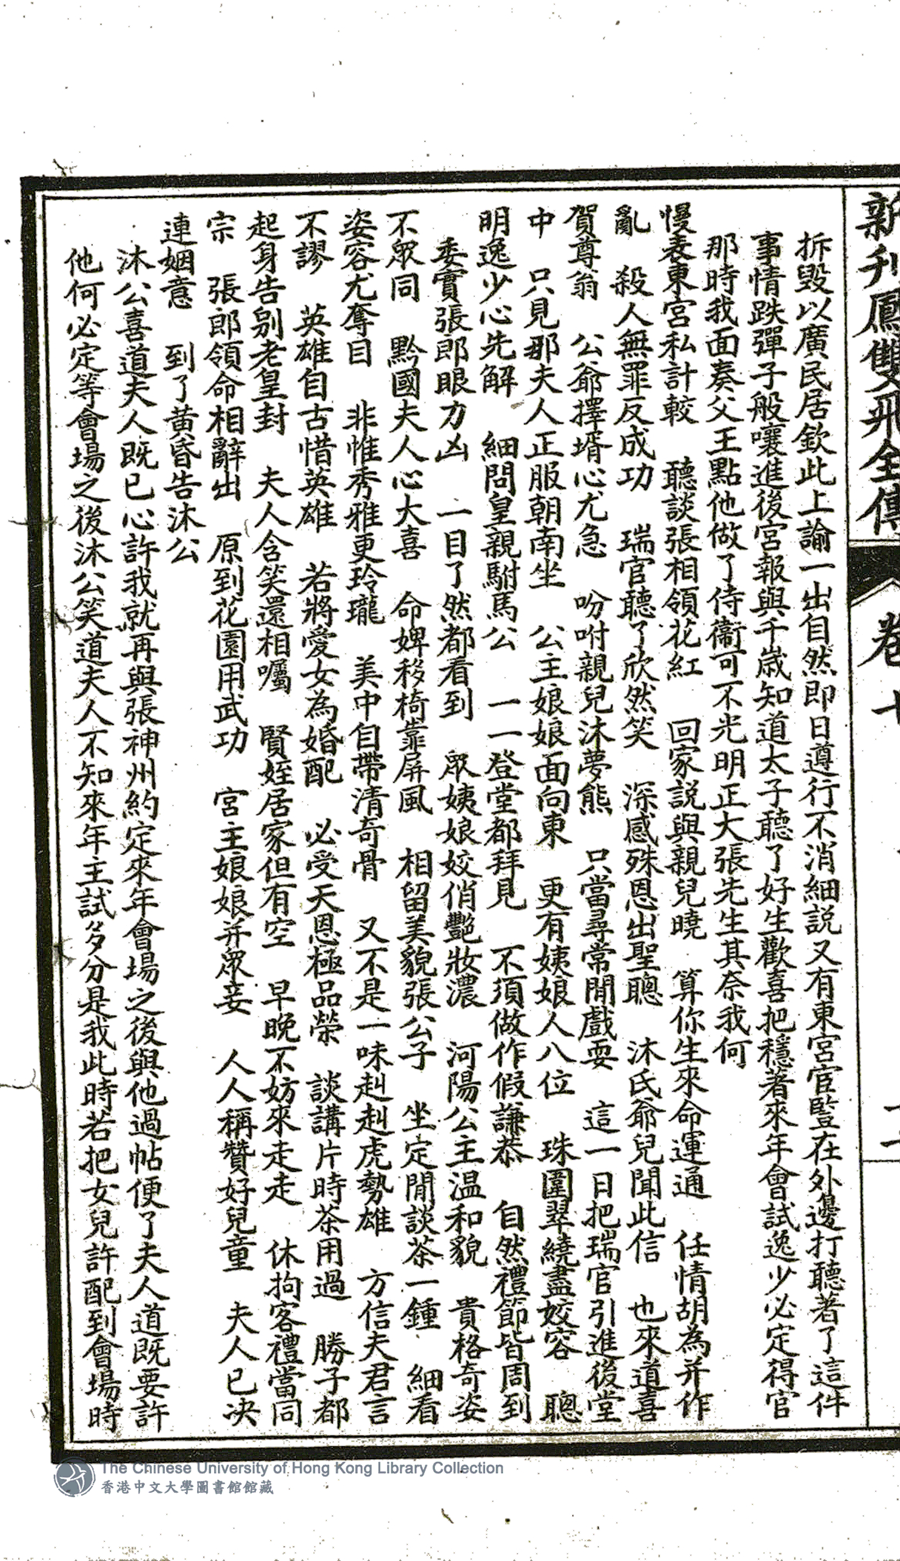 新刋鳳雙飛全傳 卷十
拆毀以廣民居欽此上諭一出自然即日遵行不消細説又有東宮官監在外邊打聽著了這件
事情跌彈子般嚷進後宮報與千歲知道太子聽了好生歡喜把穩著來年會試逸少必定得官
那時我面奏父王點他做了侍衞可不光明正大張先生其奈我何
慢表東宮私計較 聽談張相領花紅 回家説與親兒曉 算你生來命運通 任情胡為并作
亂 殺人無罪反成功 瑞官聽了欣然笑 深感殊恩出聖聰 沐氏爺兒聞此信 也來道喜
賀尊翁 公爺擇壻心尤急 吩咐親兒沐夢熊 只當尋常閒戲耍 這一日把瑞官引進後堂
中 只見那夫人正服朝南坐 公主娘娘面向東 更有姨娘人八位 珠圍翠繞盡姣容 聰
明逸少心先解 細問皇親駙馬公 一一登堂都拜見 不須做作假謙恭 自然禮節皆周到
委實張郎眼力凶 一目了然都看到 眾姨娘姣俏艷妝濃 河陽公主温和貌 貴格奇姿
不眾同 黔國夫人心大喜 命婢移椅靠屏風 相留美貌張公子 坐定閒談茶一鍾 細看
姿容尤奪目 非惟秀雅更玲瓏 美中自帶清奇骨 又不是一味赳赳虎勢雄 方信夫君言
不謬 英雄自古惜英雄 若將愛女為婚配 必受天恩極品榮 談講片時茶用過 勝子都
起身告别老皇封 夫人含笑還相囑 賢姪居家但有空 早晚不妨來走走 休拘客禮當同
宗 張郎領命相辭出 原到花園用武功 宮主娘娘并眾妾 人人稱贊好兒童 夫人已决
連姻意 到了黄昏告沐公
沐公喜道夫人既已心許我就再與張神州約定來年會場之後與他過帖便了夫人道既要許
他何必定等會場之後沐公笑道夫人不知來年主試多分是我此時若把女兒許配到會場時
The Chinese University of Hong Kong Library Collection
香港中文大學圖書館館藏